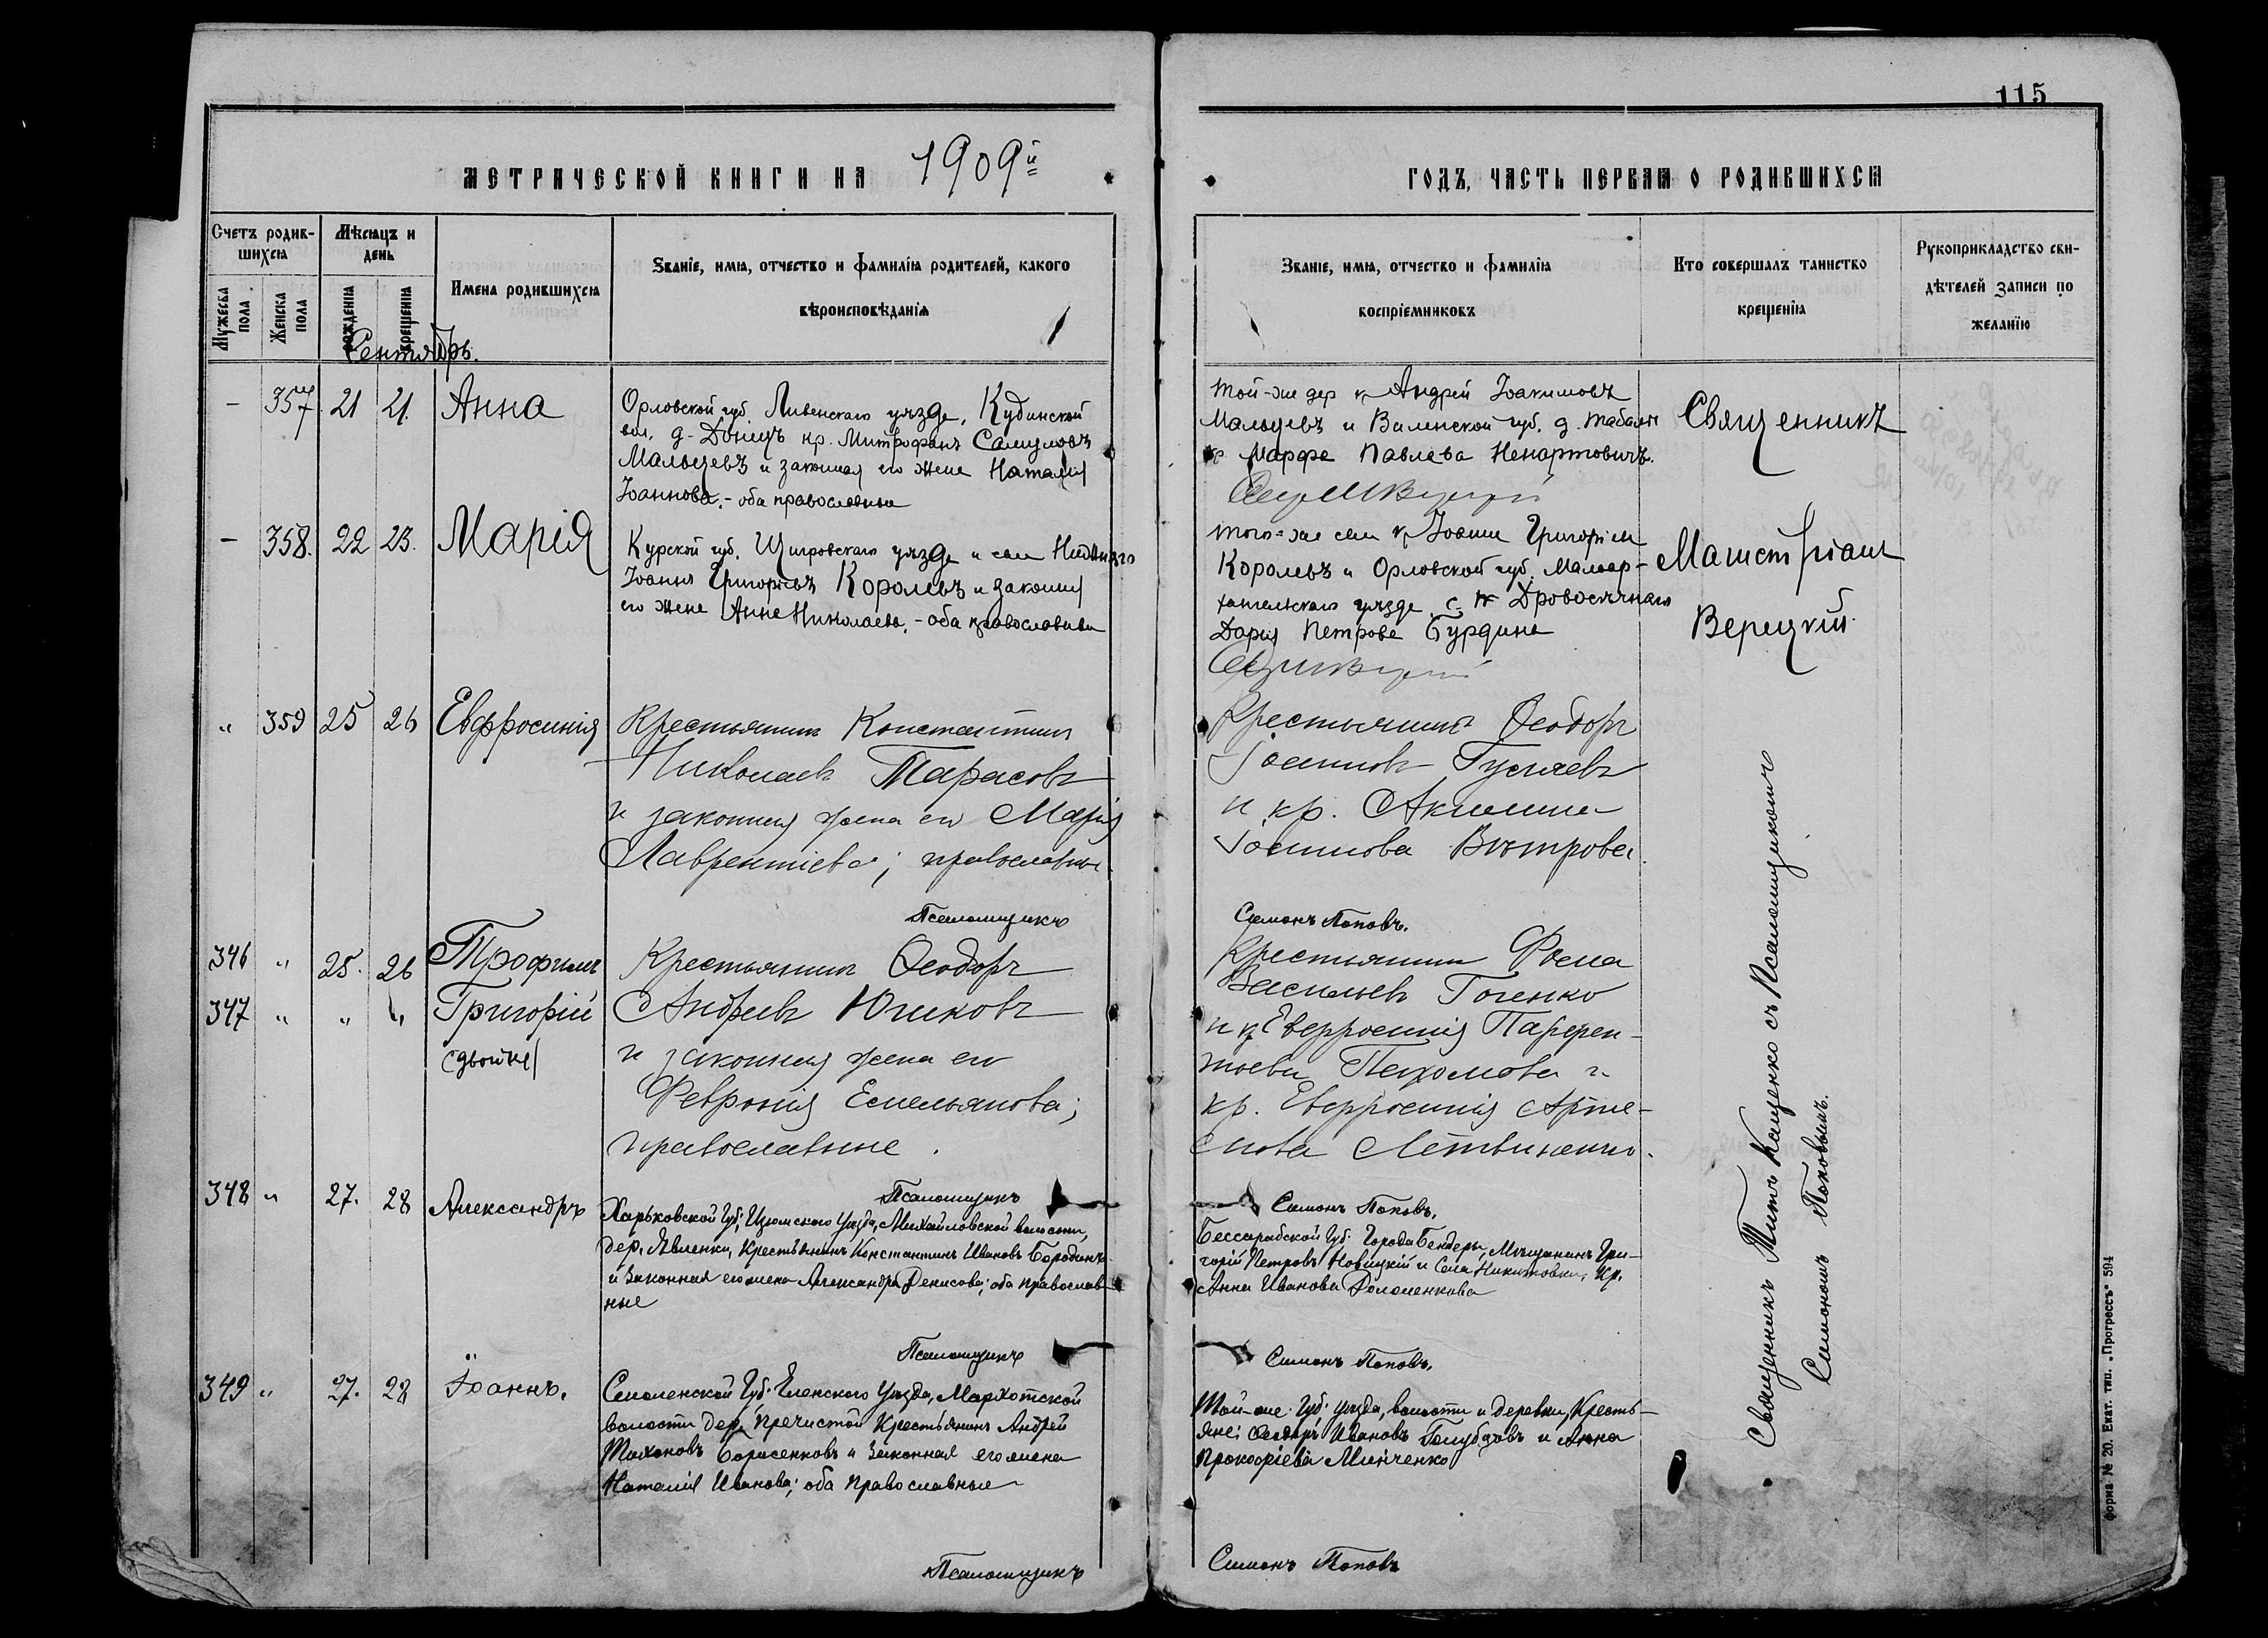 115
МЕТРИЧЕСКОЙ КНИГИ НА 1909й
ГОДЪ, ЧАСТЬ ПЕРВАЯ О РОДИВШИХСЯ
Счетъ родив-
шихся
Мѣсяцъ и
день
Мужеска пола
Женска пола
рожденія
крещенія
Имена родившихся
Званіе, имя, отчество и фамилія родителей, какого
вѣроисповѣданія
Званіе, имя, отчество и фамилія
воспріемниковъ
Кто совершалъ таинство
крещенія
Рукоприкладство сви-
дѣтелей записи по
желанію
Сентябрь.
- 357 21 21. Анна
Орловской губ. Ливенскаго уѣзда, Кудинской
вол. д. Донецъ кр. Митрофанъ Самуиловъ
Мальцевъ и законная его жена Наталія
Іоаннова. - оба православные
Той-же дер кр Андрей Іоакимовъ
Мальцевъ и Виленской губ. д.
кр Марфа Павлова Ненартовичъ.
Священникъ
- 358. 22 23. Марія
Курской губ. Щигровскаго уѣзда и села
Іоаннъ Григорьевъ Королевъ и законная
его жена Анна Николаева. - оба православные
того-же села кр Іоаннъ Григорьевъ
Королевъ и Орловской губ. Малоар-
хангельскаго уѣзда с. Дровосѣчнаго
Дарія Петрова Бурдина
Магистріанъ
Верецкій
" 359 25 26 Евфросинія
Крестьянинъ Константинъ
Николаевъ Тарасовъ
и законная жена его Марія
Лаврентіева; православные.
Псаломщикъ
Крестьянинъ Ѳеодоръ
Іоанновъ Гусляевъ
и кр. Акилина
Іоаннова Вѣтрова.
Симонъ Поповъ.
346 " 25. 26 Трофимъ
347 " " " Григорій
(двойни)
Крестьянинъ Ѳеодоръ
Андреевъ Юшковъ
и законная жена его
Февронія Емельянова;
православные.
Псаломщикъ
Крестьянинъ Ѳома
Васильевъ Гоненко
и кр Евфросинія Парфен-
тьева Пахомова и
кр. Евфросинія Арте-
мова Литвиненко.
Симонъ Поповъ.
348 " 27. 28 Александръ
Харьковской Губ; Изюмскаго Уѣзда, Михайловской волости,
дер. Явленки, Крестьянинъ Константинъ Ивановъ Бородинъ
и Законная его жена Александра Денисова; оба православ-
ные
Псаломщикъ
Бессарабской Губ. Города Бендеры, Мѣщанинъ Гри-
горій Петровъ Новицкій и Села Никитовки, Кр.
Анна Иванова Доломенкова
Симонъ Поповъ.
349 " 27. 28 Іоаннъ.
Смоленской Губ. Еленскаго Уѣзда, Мархоткой
волости дер. Пречистой Крестьянинъ Андрей
Тихоновъ Борисенковъ и Законная его жена
Наталія Иванова; оба Православные
Псаломщикъ
Той-же Губ. уѣзда, волости и деревни, Кресть-
яне: Ѳеодоръ Ивановъ Голубцовъ и Анна
Прокофіева Минченко
Симонъ Поповъ
Священникъ Титъ Кащенко съ Псаломщикомъ
Симономъ Поповымъ.
форма № 20. Екат. тип. „Прогрессъ" 594